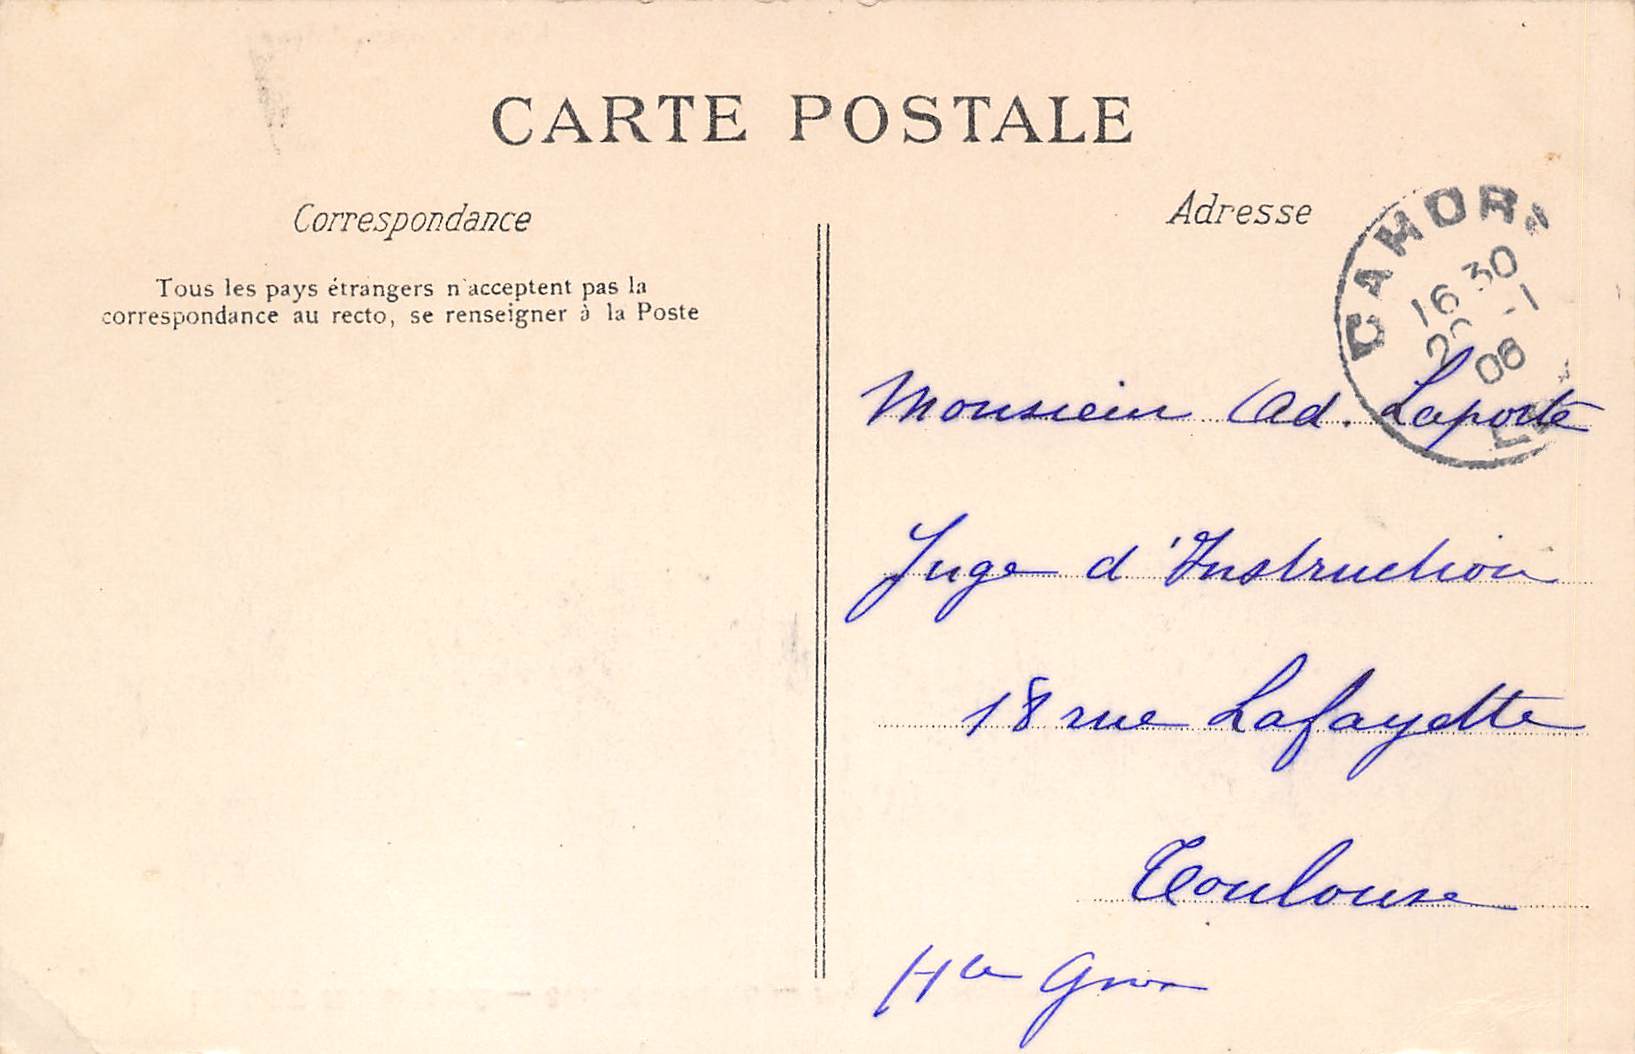 CARTE POSTALE
Correspondance
Tous les pays étrangers n'acceptent pas la
correspondance au recto, se renseigner à la Poste
Adresse
CAHOR
16 30
-1
06
Monsieur Ad. Laporte
Juge d'Instruction
18 rue Lafayette
Toulouse
Hte Gnne